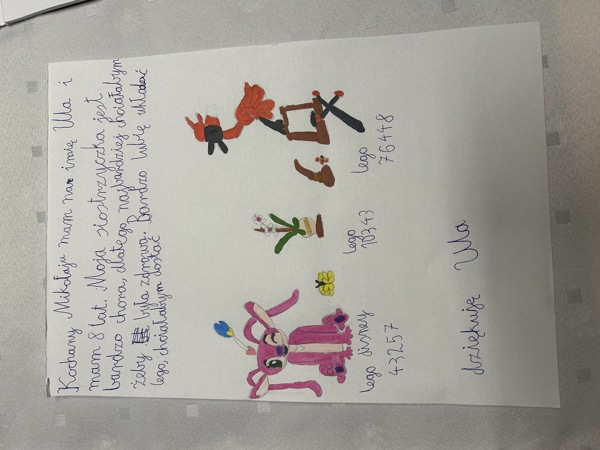 Kochany Mikołaju mam na imię Ula i
mam 8 lat. Moja siostrzyczka jest
bardzo chora, dlatego najbardziej chciałabym
żeby była zdrowa. Bardzo lubię układać
lego, chciałabym dostać
lego disney
43257
lego
10343
lego
76448
dziękuję Ula